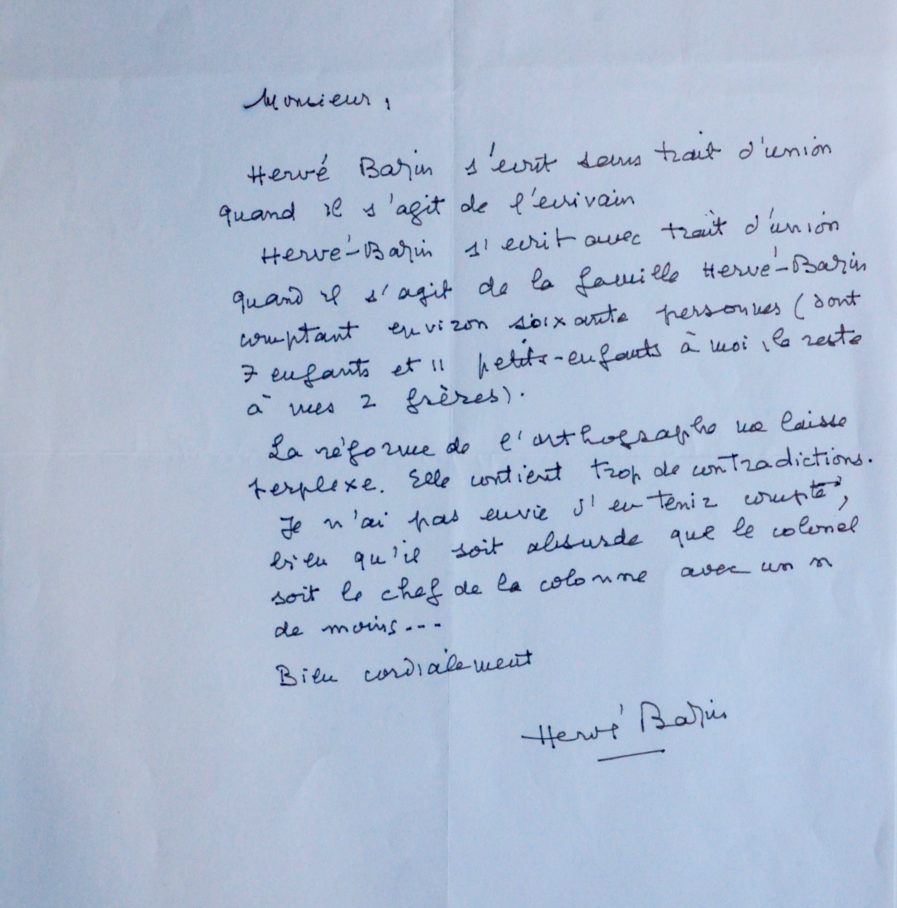 Monsieur,
Hervé Bazin s'écrit sans trait d'union
quand il s'agit de l'écrivain
Hervé-Bazin s'écrit avec trait d'union
quand il s'agit de la famille Hervé-Bazin
comptant environ soixante personnes (dont
7 enfants et 11 petits-enfants à moi, le reste
à mes 2 frères).
La réforme de l'orthographe me laisse
perplexe. Elle contient trop de contradictions.
Je n'ai pas envie d'en tenir compte,
bien qu'il soit absurde que le colonel
soit le chef de la colonne avec un n
de moins...
Bien cordialement
Hervé Bazin